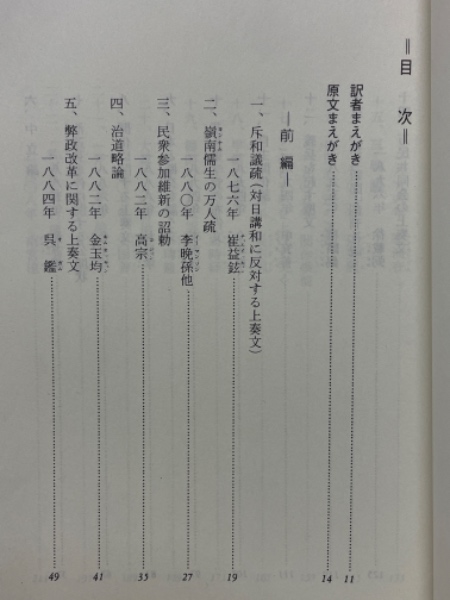 ＝目　次＝
訳者まえがき……………11
原文まえがき……………14
―前　編―
一、斥和議疏（対日講和に反対する上奏文）
一八七六年　崔益鉉……………19
二、嶺南儒生の万人疏
一八八〇年　李晩孫他……………27
三、民衆参加維新の詔勅
一八八二年　高宗……………35
四、治道略論
一八八二年　金玉均……………41
五、弊政改革に関する上奏文
一八八四年　呉　鑑……………49